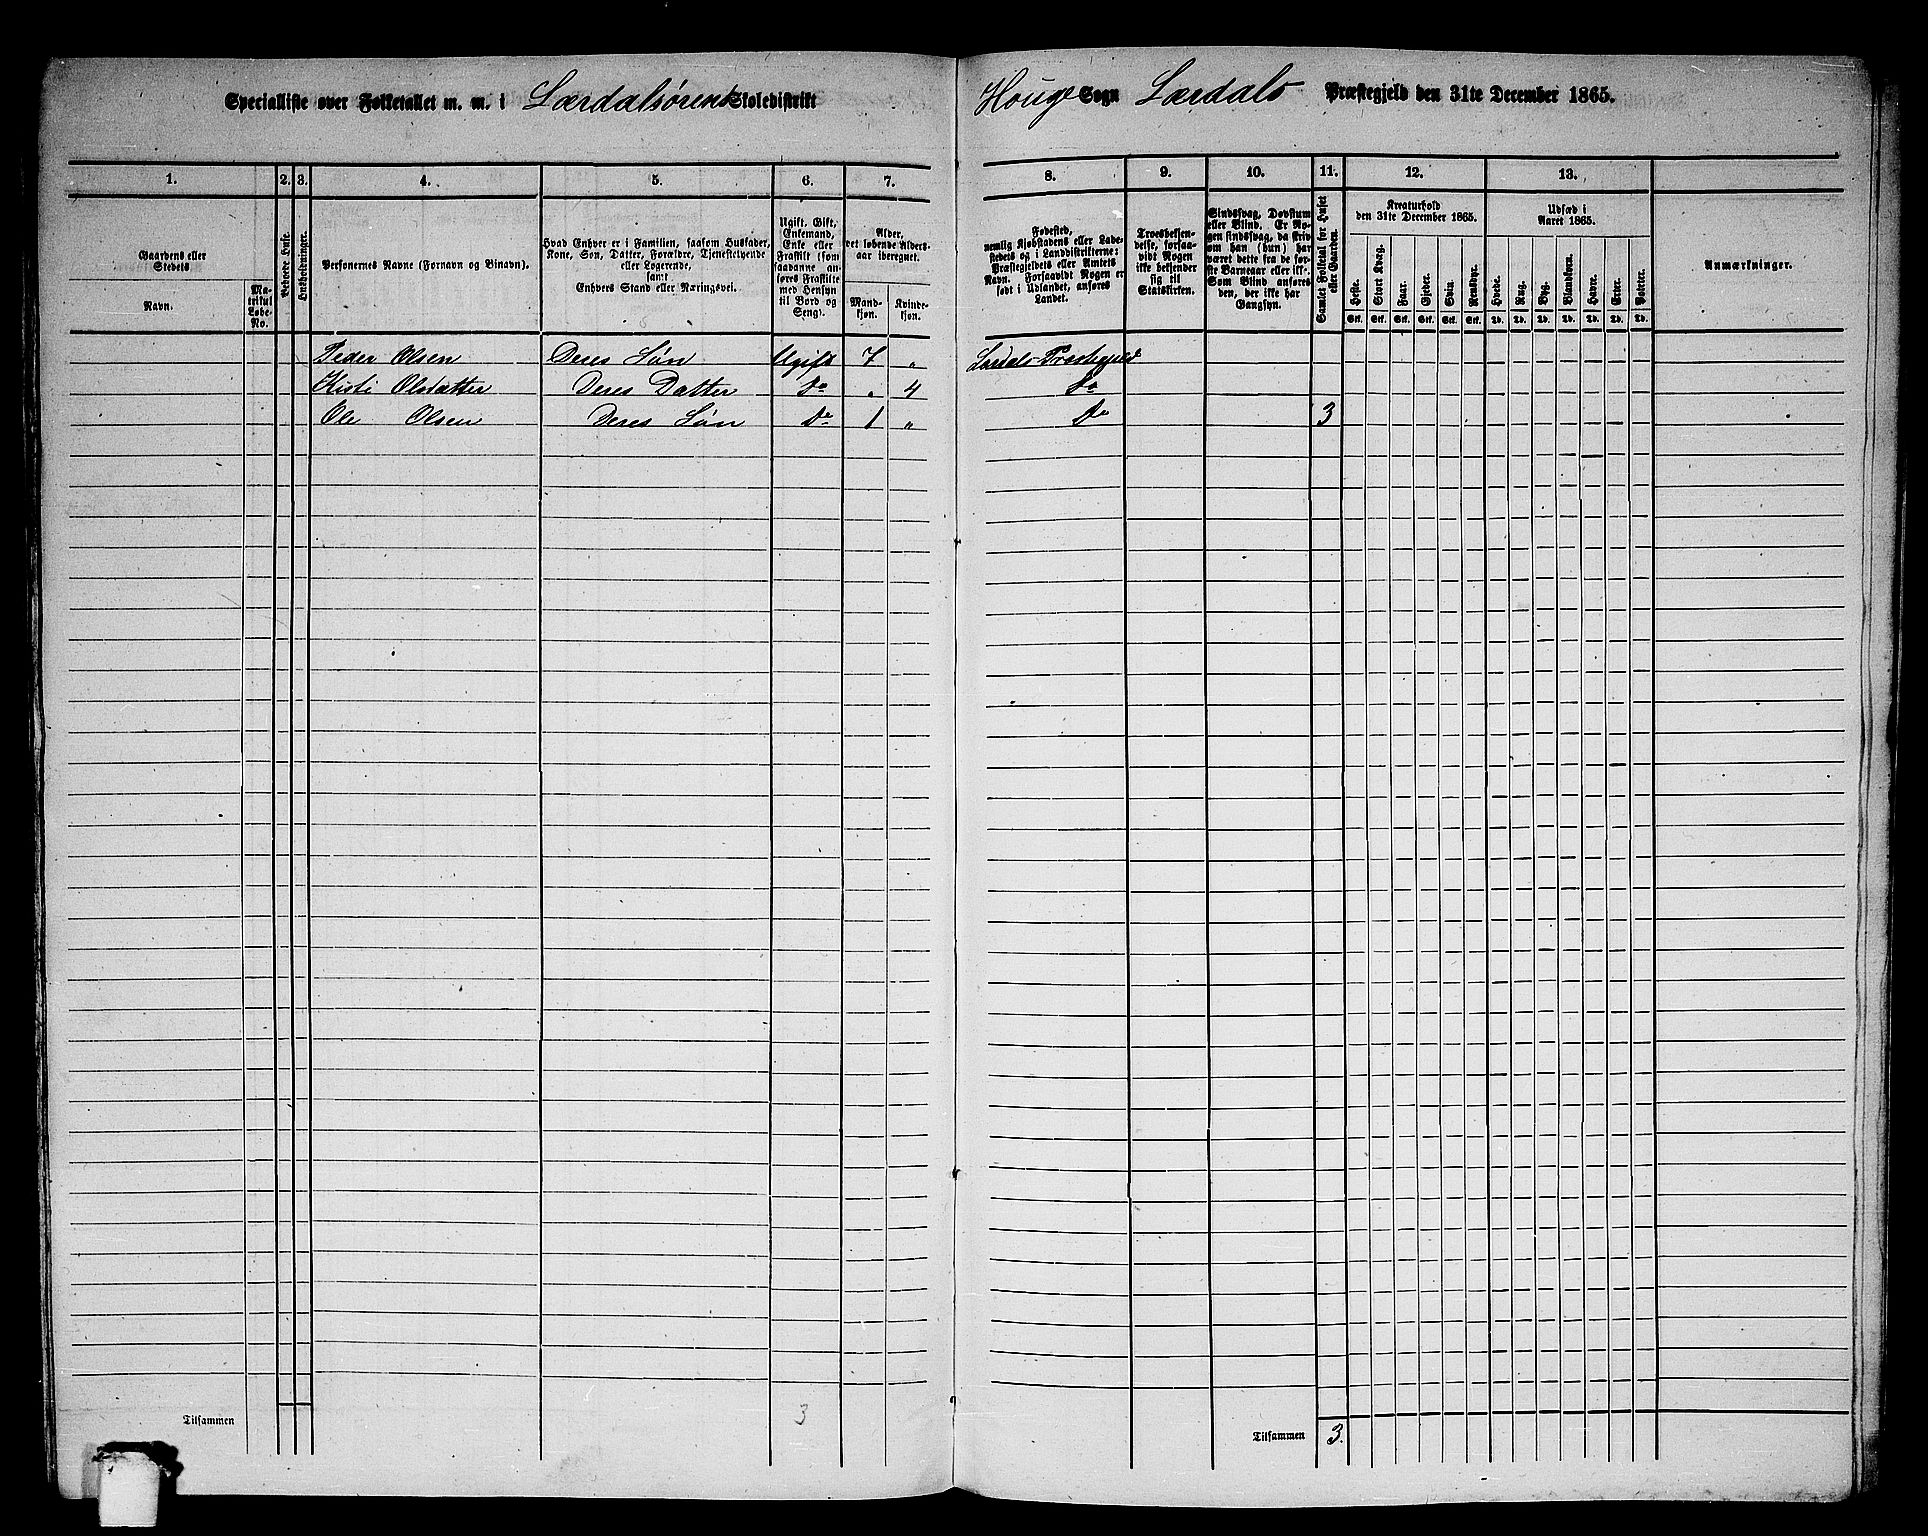 Specialliste over Folketallet m. m. i Lærdalsørens Skoledistrikt
Houge Sogn Lærdals Præstegjeld den 31te December 1865.
1. 2. 3. 4. 5. 6. 7.
8. 9. 10. 11. 12. 13.
Gaardens eller Stedets
Navn.
Matrikul Løbe-No.
Beboede Huse.
Husholdninger.
Personernes Navne (Fornavn og Binavn).
Hvad Enhver er i Familien, saasom Husfader, Kone, Søn, Datter, Forældre, Tjenestetyende eller Logerende, samt
Enhvers Stand eller Næringsvei.
Ugift, Gift, Enkemand, Enke eller Fraskilt (som saadanne anføres Fraskilte med Hensyn til Bord og Seng).
Alder, det løbende Alders-aar iberegnet.
Mandkjøn.
Kvindekjøn.
Fødested, nemlig Kjøbstadens eller Ladestedets og i Landdistrikterne: Præstegjeldets eller Amtets Navn. Forsaavidt Nogen er født i Udlandet, anføres Landet.
Troesbekjendelse, forsaavidt Nogen ikke bekjender sig til Statskirken.
Sindssvag, Døvstum eller Blind. Er Nogen sindssvag, da skriv om han (hun) har været dette fra de første Barneaar eller ikke. Som Blind anføres den, der ikke har Gangsyn.
Samlet Folketal for Huset eller Gaarden.
Kreaturhold den 31te December 1865.
Heste. Stort Kvæg. Faar. Gjeder. Svin. Rensdyr.
Stk. Stk. Stk. Stk. Stk. Stk.
Udsæd i Aaret 1865.
Hvede. Rug. Byg. Blandkorn. Havre. Erter. Poteter.
Td. Td. Td. Td. Td. Td. Td.
Anmærkninger.
Peder Olsen Deres Søn Ugift 7 „ Lærdals Præstegjeld
Kisti Olsdatter Deres Datter Do „ 4 Do
Ole Olsen Deres Søn Do 1 „ Do 3
Tilsammen 3
Tilsammen 3.